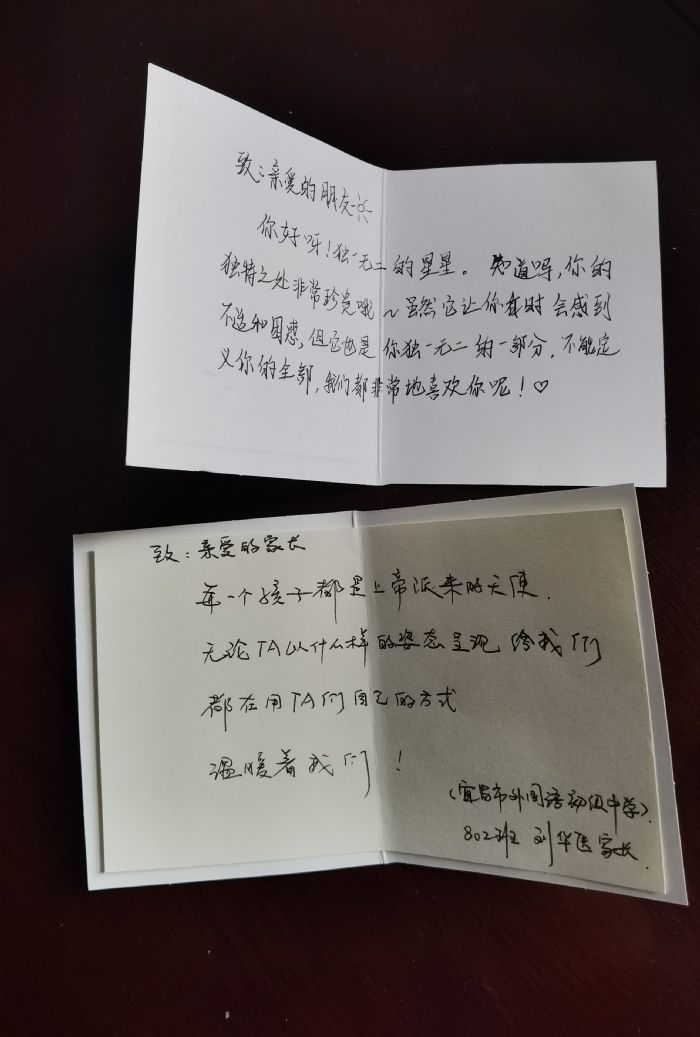 致：亲爱的朋友
你好呀！独一无二的星星。知道吗，你的
独特之处非常珍贵哦～虽然它让你有时会感到
不适和困惑，但它也是你独一无二的一部分，不能定
义你的全部，我们都非常地喜欢你呢！♡
致：亲爱的家长
每一个孩子都是上帝派来的天使.
无论TA以什么样的姿态呈现给我们
都在用TA们自己的方式
温暖着我们！
（宜昌市外国语初级中学）
802班 刘华医家长.